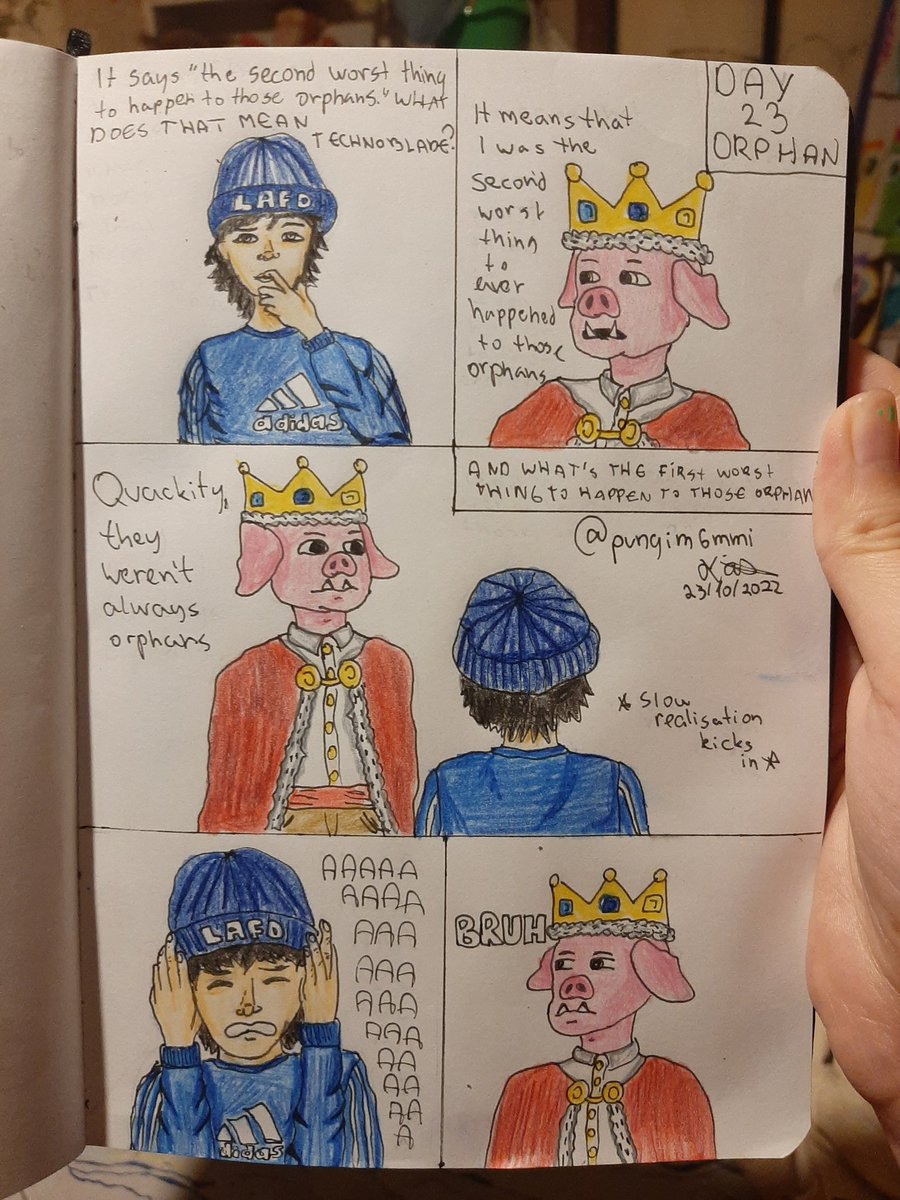 It says "the second worst thing
to happen to those orphans." WHAT
DOES THAT MEAN
TECHNOBLADE?
LAFD
adidas
It means that
I was the
second
worst
thing
to
ever
happened
to those
orphans
DAY
23
ORPHAN
Quackity,
they
weren't
always
orphans
AND WHAT'S THE FIRST WORST
THING TO HAPPEN TO THOSE ORPHAN
@pungim6mmi
23/10/2022
* Slow
realisation
kicks
in *
LAFD
adidas
AAAAA
AAAA
AAA
AAA
AAA
AAA
AA
AA
AA
A
BRUH